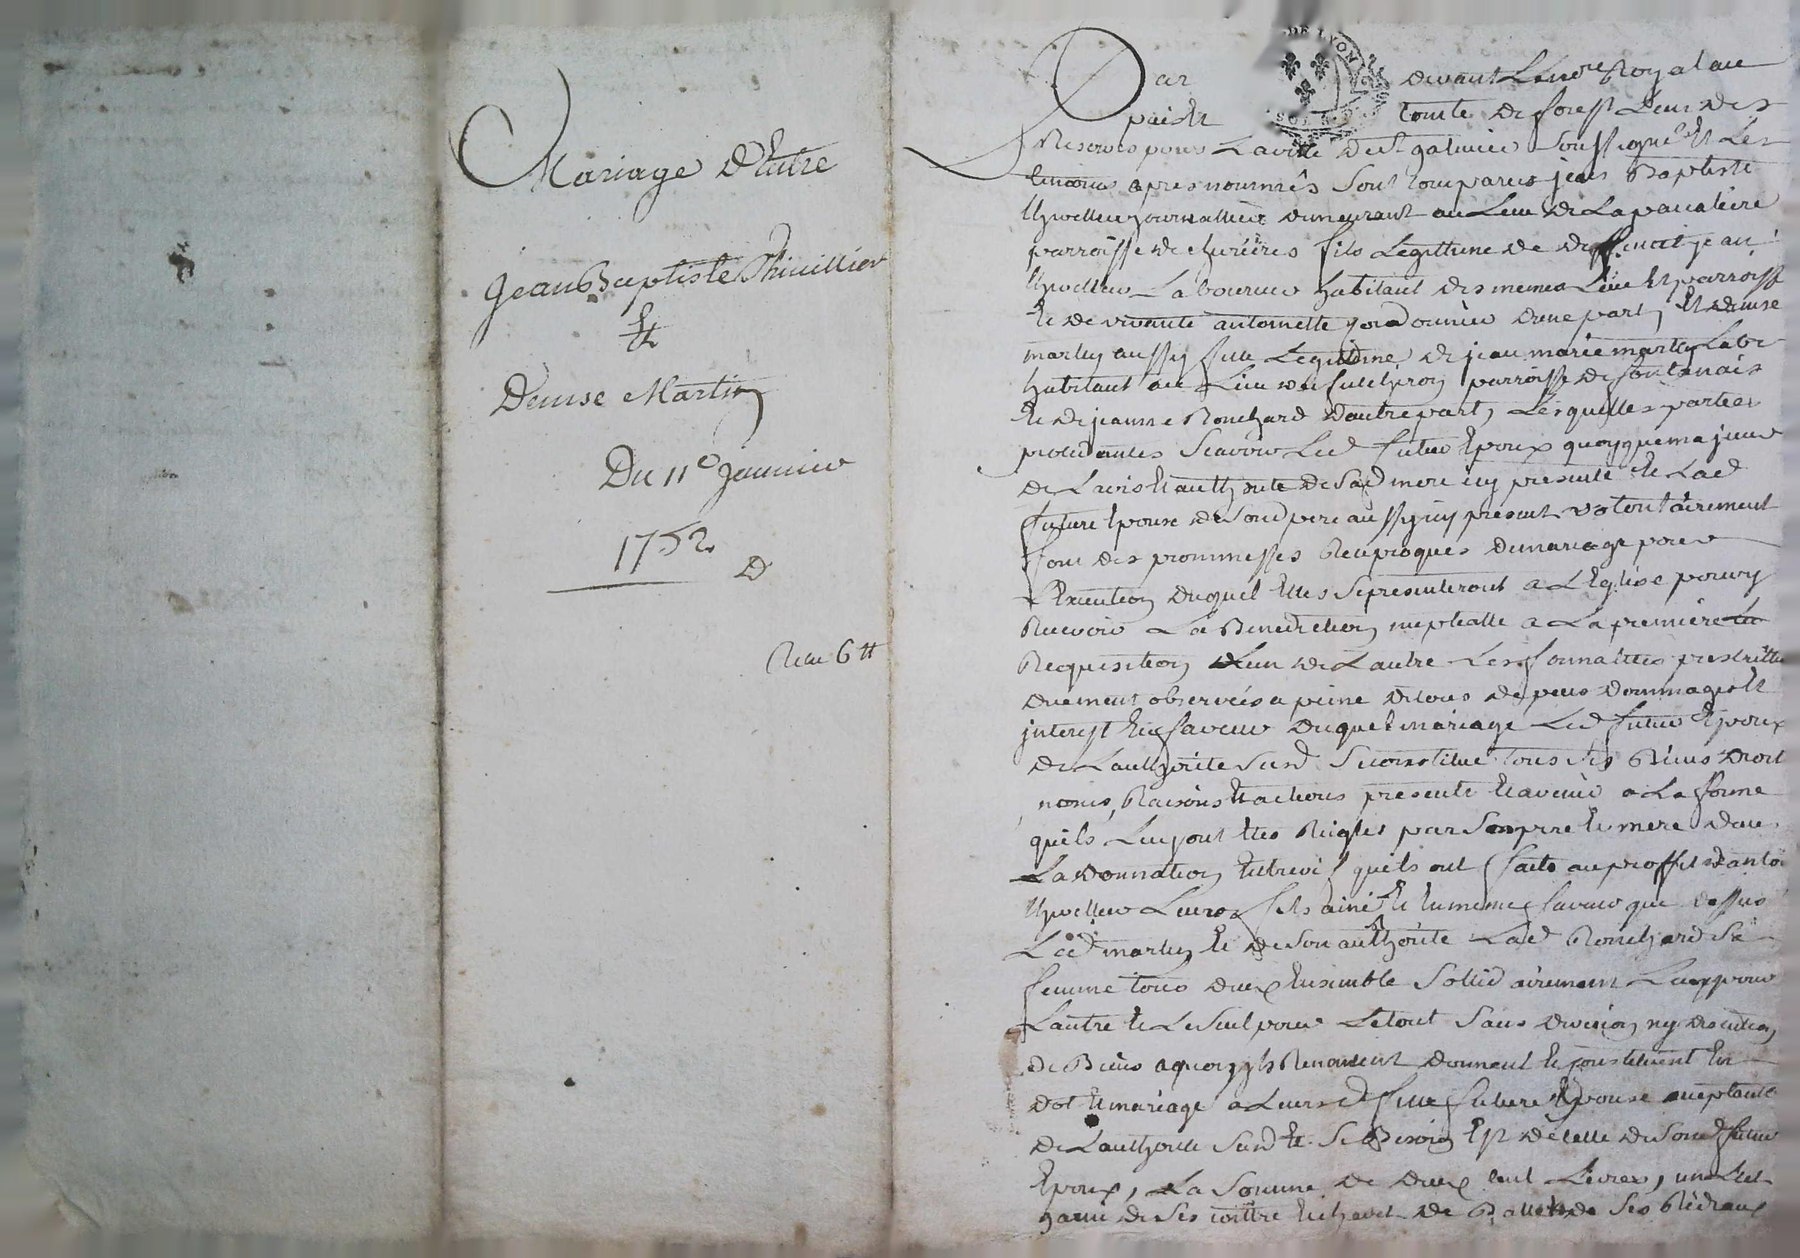 Mariage D'Entre
Jean Baptiste Thivillier
Et
Denise Martin
Du 11e Janvier
1752
D
Receu 6 tt
DE LYON
Par devant Le nore Royal au
païs Et Comté de forest L'un des
Reservés pour La ville de St galmier Soussigné Et Les
temoins apres nommés Sont Comparus jean Baptiste
thivellier journallier demeurant au Lieu de La
parroisse de fils Legittime de deffunct jean
thivellier Laboureur habitant des memes Lieu Et parroisse
Et de vivante antoinette d'une part, Et denise
martin aussy fille Legitime de jean marie martin Labr
habitant au Lieu de parroisse de fontanais
Et de jeanne Ronchard D'autre part, Lesquelles parties
procedantes Scavoir Led futur Epoux quoyque majeur
de Lavis Et authorité de Sad mere icy presente Et Lad
future Epouse de Sond pere aussy icy present volontairement
font des prommesses Reciproques de mariage pour
L'Execution duquel Elles Se presenteront a L'Eglise pour y
Recevoir La Benediction nuptialle a La premiere
Requisition L'un de L'autre Les formalittés prescrittes
duement observées a peine de tous depens dommages Et
interest En faveur duquel mariage Led futur Epoux
de L'authorité Susd Se Constitue tous Ses Biens Droit
noms, Raisons Et actions presente Et avenir a La forme
quils Luy ont Etes Reigles par Son pere Et mere dans
La donnation Entrevif quils ont faite au proffit d'antoi
thivellier Leur fils ainé Et En meme faveur que dessus
Led martin Et de Son authorité Lad Ronchard Sa
femme tous deux Ensemble Sollidairement L'un pour
L'autre Et Le Seul pour Le tout Sans division ny discution
de Biens a quoy ils Renoncent donnent Et Constituent En
dot Et mariage a Leursd fille future Epouse acceptante
de L'authorité Susd Et Si Besoin Est de Celle de Sond futur
Epoux, La Somme de deux Cent Livres, un Lit
garni de Ses Coittre Et chevet de de Ses Rideaux